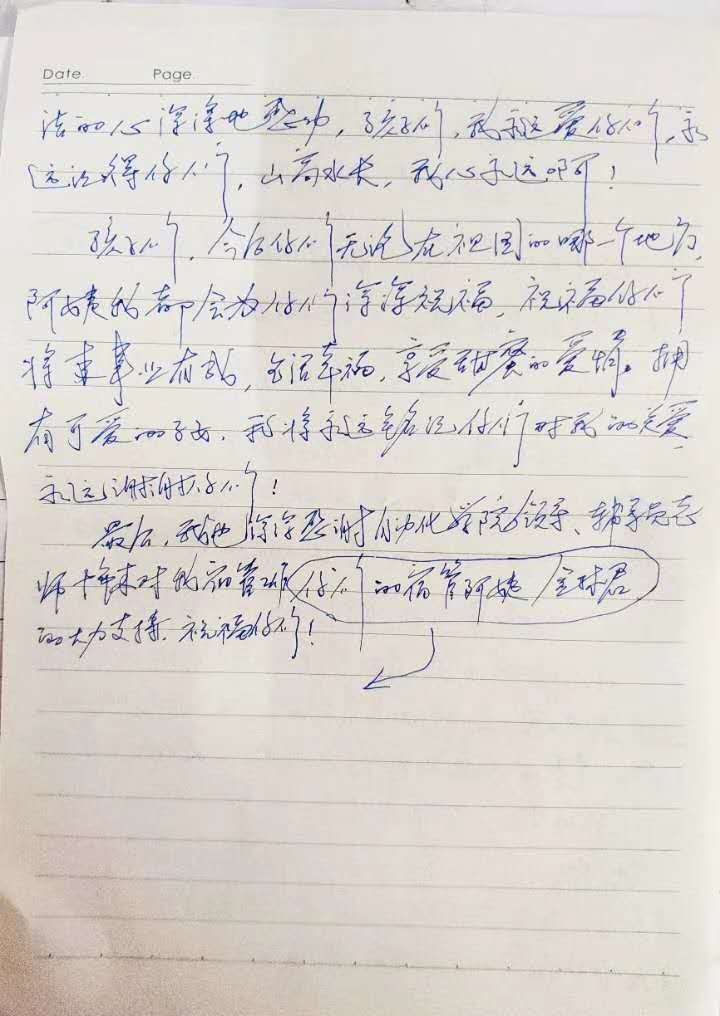 Date.          Page.
洁的心深深地感动，孩子们，我永远爱你们，永
远记得你们，山高水长，我心永远啊！
孩子们，今后你们无论在祖国的哪一个地方，
阿姨我都会为你们深深祝福，祝福你们
将来事业有成，生活幸福，享受甜蜜的爱情。拥
有可爱的子女，我将永远铭记你们对我的关爱，
永远谢谢你们！
最后，我也深深感谢自动化学院领导、辅导员老
师十年来对我宿管工作 你们的宿管阿姨
的大力支持，祝福你们！